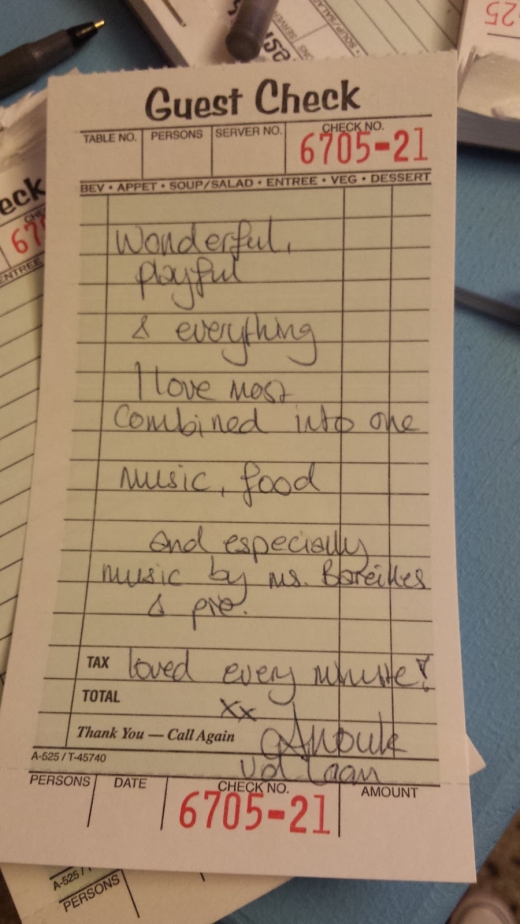 Guest Check
TABLE NO. PERSONS SERVER NO. CHECK NO.
6705-21
BEV • APPET • SOUP/SALAD • ENTREE • VEG • DESSERT
Wonderful,
playful
& everything
I love most
Combined into one
music, food
and especially
music by ms. Bareilles
& pie.
TAX loved every minute!
TOTAL xx
Thank You — Call Again Anouk
vd Laan
A-525 / T-45740
PERSONS DATE CHECK NO. AMOUNT
6705-21
eck
67
ENTREE
A-525 /
PERSONS
SOUP/SALA
25